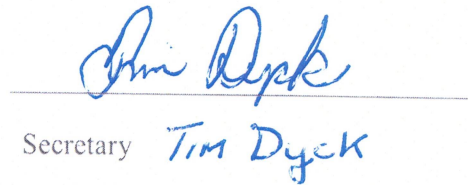 Tim Dyck
Secretary Tim Dyck